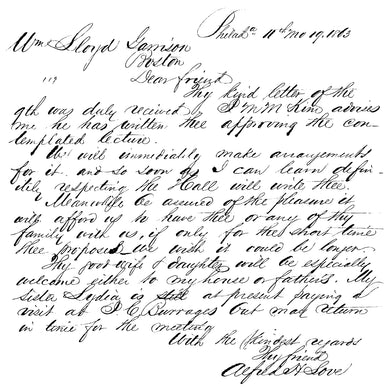 Philada 11th Mo 19, 1863
Wm Lloyd Garrison
Boston
Dear friend
Thy kind letter of the
9th was duly received, J M M Kim advises
me he has written thee approving the con-
templated lecture.
We will immediately make arrangements
for it. and so soon as I can learn defin-
itely respecting the Hall will write thee.
Meanwhile be assured of the pleasure it
will afford us to have thee or any of thy
family with us, if only for the short time
thee proposes, we wish it could be longer.
Thy good wife & daughter will be especially
welcome either to my house or father's. My
sister Lydia is still at present paying a
visit at J. C. Burrages but may return
in time for the meeting
With the kindest regards
Thy friend
Alfred H Love